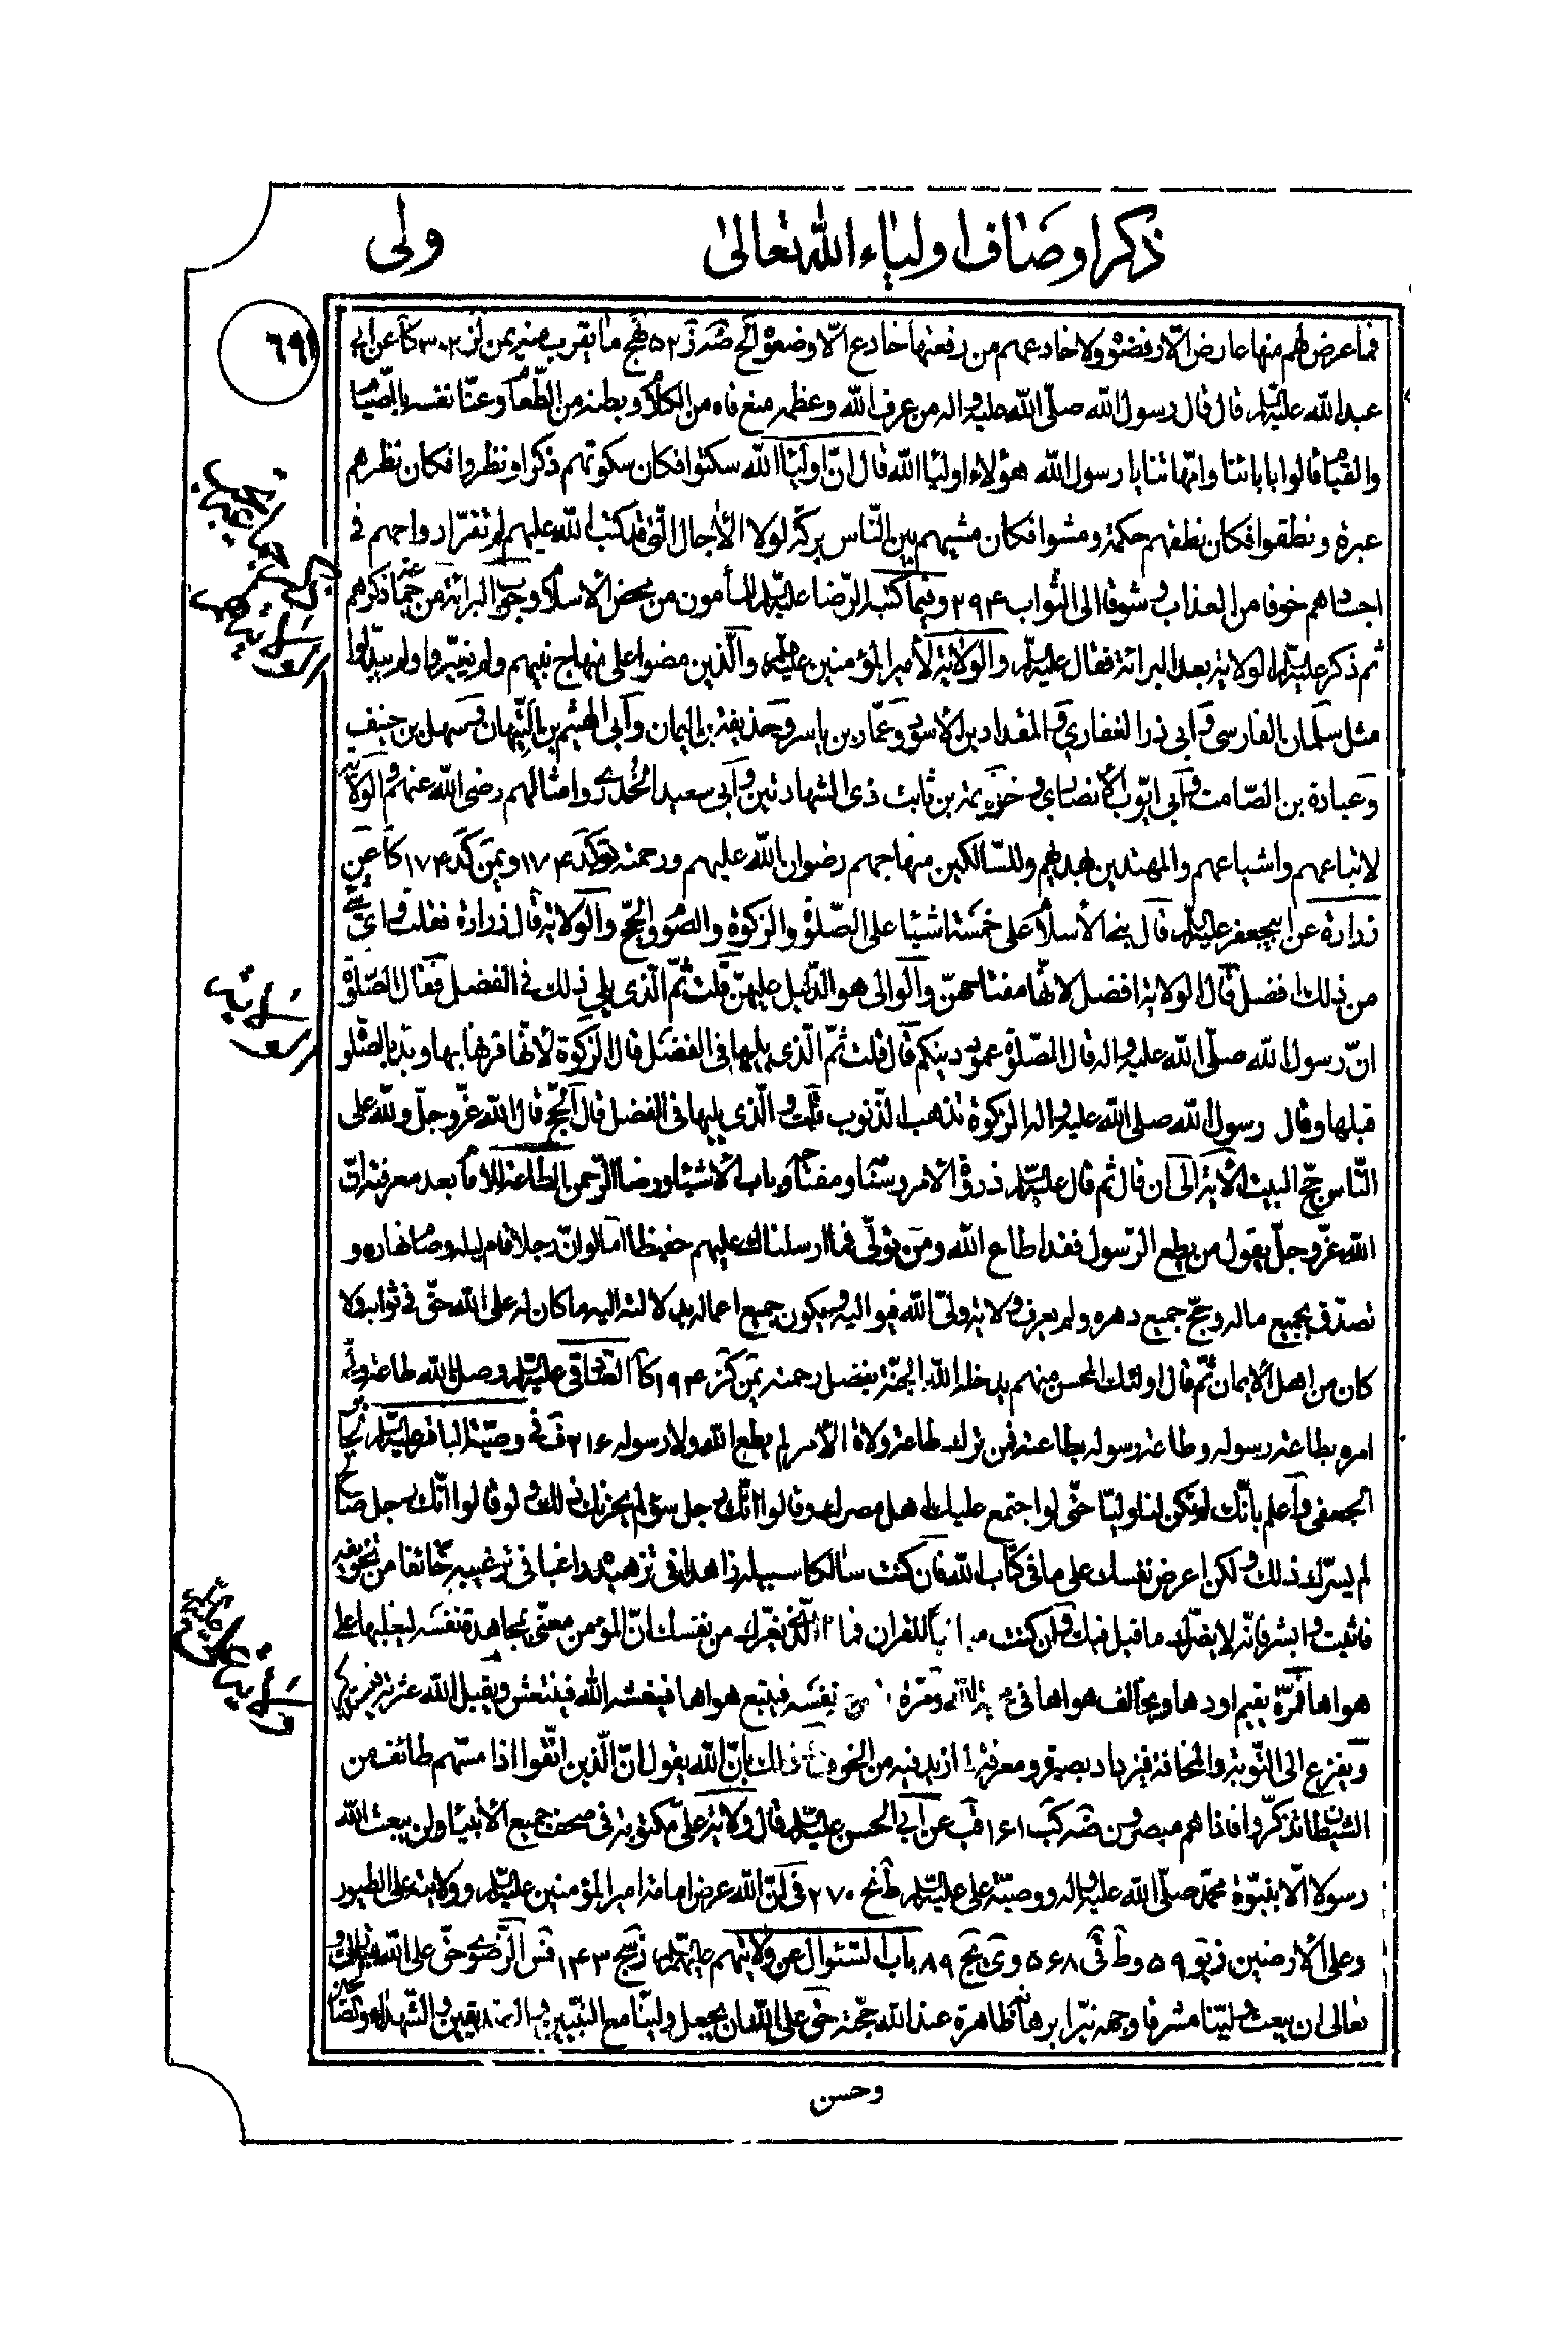 ذكر اوصاف اولياء الله تعالى
ولى
٦٩١
فما عرض لهم منها عارض الّا رفضوه ولا خادعهم من رفعتها خادع الّا وضعوه الخ ضه نز ٥٢ نهج ما يقرب منه يمن لز ٣٠٢ كا عن ابي
عبد الله عليه السلام قال قال رسول الله صلّى الله عليه واله من عرف الله وعظمه منع فاه من الكلام وبطنه من الطّعام وعنّا نفسه بالصّيام
والقيام قالوا بابائنا وامّهاتنا يا رسول الله هؤلاء اولياء الله قال انّ اولياء الله سكتوا فكان سكوتهم ذكرا ونظروا فكان نظرهم
عبرة ونطقوا فكان نطقهم حكمة ومشوا فكان مشيهم بين النّاس بركة لولا الأجال الّتي قد كتب الله عليهم لم تقرّ ارواحهم في
اجسادهم خوفا من العذاب وشوقا الى الثّواب ٢٩٤ وفيما كتب الرّضا عليه السلام للمأمون من محض الأسلام وجوب البرائة من جماعة ذكرهم
ثم ذكر عليه السلام الولاية بعد البرائة فقال عليه السلام والولاية لأمير المؤمنين عليه السلام والّذين مضوا على منهاج نبيهم ولم يغيّروا ولم يبدّلوا
مثل سلمان الفارسي وابي ذر الغفاري والمقداد بن الأسود وعمّار بن ياسر وحذيفة بن اليمان وابي الهيثم بن التّيهان وسهل بن حنيف
وعبادة بن الصّامت وابي ايّوب الأنصاري وخزيمة بن ثابت ذى الشهادتين وابي سعيد الخدري وامثالهم رضى الله عنهم والولاية
لاتباعهم واشياعهم والمهتدين بهديهم وللسّالكين منهاجهم رضوان الله عليهم ورحمته كد ١٧٤ ويمن كد ١٧٤ كا عن
زرارة عن ابيجعفر عليه السلام قال بني الأسلام على خمسة اشياء على الصّلوة والزكوة والصّوم والحجّ والولاية قال زرارة فقلت واىّ شيء
من ذلك افضل قال الولاية افضل لانّها مفتاحهنّ والوالى هو الدّليل عليهنّ قلت ثمّ الّذى يلى ذلك في الفضل فقال الصّلوة
انّ رسول الله صلّى الله عليه واله قال الصّلوة عمود دينكم قال قلت ثمّ الّذى يليها في الفضل قال الزّكوة لأنّها قرنها بها وبدء بالصّلوة
قبلها وقال رسول الله صلى الله عليه واله الزكوة تذهب الذّنوب قلت والّذى يليها في الفضل قال الحجّ قال الله عزّ وجلّ ولله على
النّاس حجّ البيت الأية الى ان قال ثم قال عليه السلام ذروة الأمر وسنامه ومفتاحه وباب الأشياء ورضا الرّحمن الطّاعة للامام بعد معرفته انّ
الله عزّ وجلّ يقول من يطع الرّسول فقد اطاع الله ومن تولّى فما ارسلناك عليهم حفيظا اما لو انّ رجلا قام ليله وصام نهاره و
تصدّق بجميع ماله وحجّ جميع دهره ولم يعرف ولاية ولىّ الله فيواليه ويكون جميع اعماله بدلالته اليه ما كان له على الله حقّ في ثوابه ولا
كان من اهل الأيمان ثمّ قال اولئك المحسن منهم يدخله الله الجنّة بفضل رحمته يمن كز ١٩٤ كا الصّادق عليه السلام وصل الله طاعة ولىّ
امره بطاعة رسوله وطاعة رسوله بطاعته فمن ترك طاعة ولاة الأمر لم يطع الله ولا رسوله ٢١٦ ف في وصيّة الباقر عليه السلام لجابر
الجعفى واعلم بأنّك لا تكن لنا وليّا حتّى لو اجتمع عليك اهل مصرك وقالوا انّك رجل سوء لم يحزنك ذلك ولو قالوا انّك رجل صالح
لم يسرّك ذلك ولكن اعرض نفسك على ما في كتاب الله فان كنت سالكا سبيله زاهدا في تزهيده راغبا في ترغيبه خائفا من تخويفه
فاثبت وابشر فانّه لا يضرّك ما قيل فيك وان كنت مباينا للقران فما ذا الّذى يغرّك من نفسك انّ المؤمن معنّى بمجاهدة نفسه ليغلبها على
هواها فمرّة يقيم اودها ويخالف هواها في ومرّة نفسه فيتبع هواها فينعشه الله فينتعش ويقيل الله عثرته فيتذكر
ويفزع الى التّوبة والمخافة فيزداد بصيرة ومعرفة لما زيد فيه من الخوف وذلك بانّ الله يقول انّ الّذين اتّقوا اذا مسّهم طائف من
الشيطان تذكّروا فاذا هم مبصرون ضه كب ١٦١ قب عن ابي الحسن عليه السلام قال ولاية علىّ مكتوبة في صحف جميع الأنبياء ولن يبعث الله
رسولا الّا بنبوّة محمّد صلّى الله عليه واله ووصيّة على عليه السلام ط نح ٢٧٠ في انّ الله عرض امامة امير المؤمنين عليه السلام وولايته على الطيور
وعلى الأرضين ز يو ٥٩ وط قى ٥٦٨ وى يج ٨٩ باب السّئوال عن ولايتهم عليهم السلام ز سج ١٤٣ فس الرّضوى حقّ على الله تبارك و
تعالى ان يبعث وليّنا مشرقا وجهه نيّرا برهانه ظاهرة عند الله حجّته حقّ على الله ان يجعل وليّنا مع النبّيين والصّدّيقين والشّهداء والصّالحين
وحسن